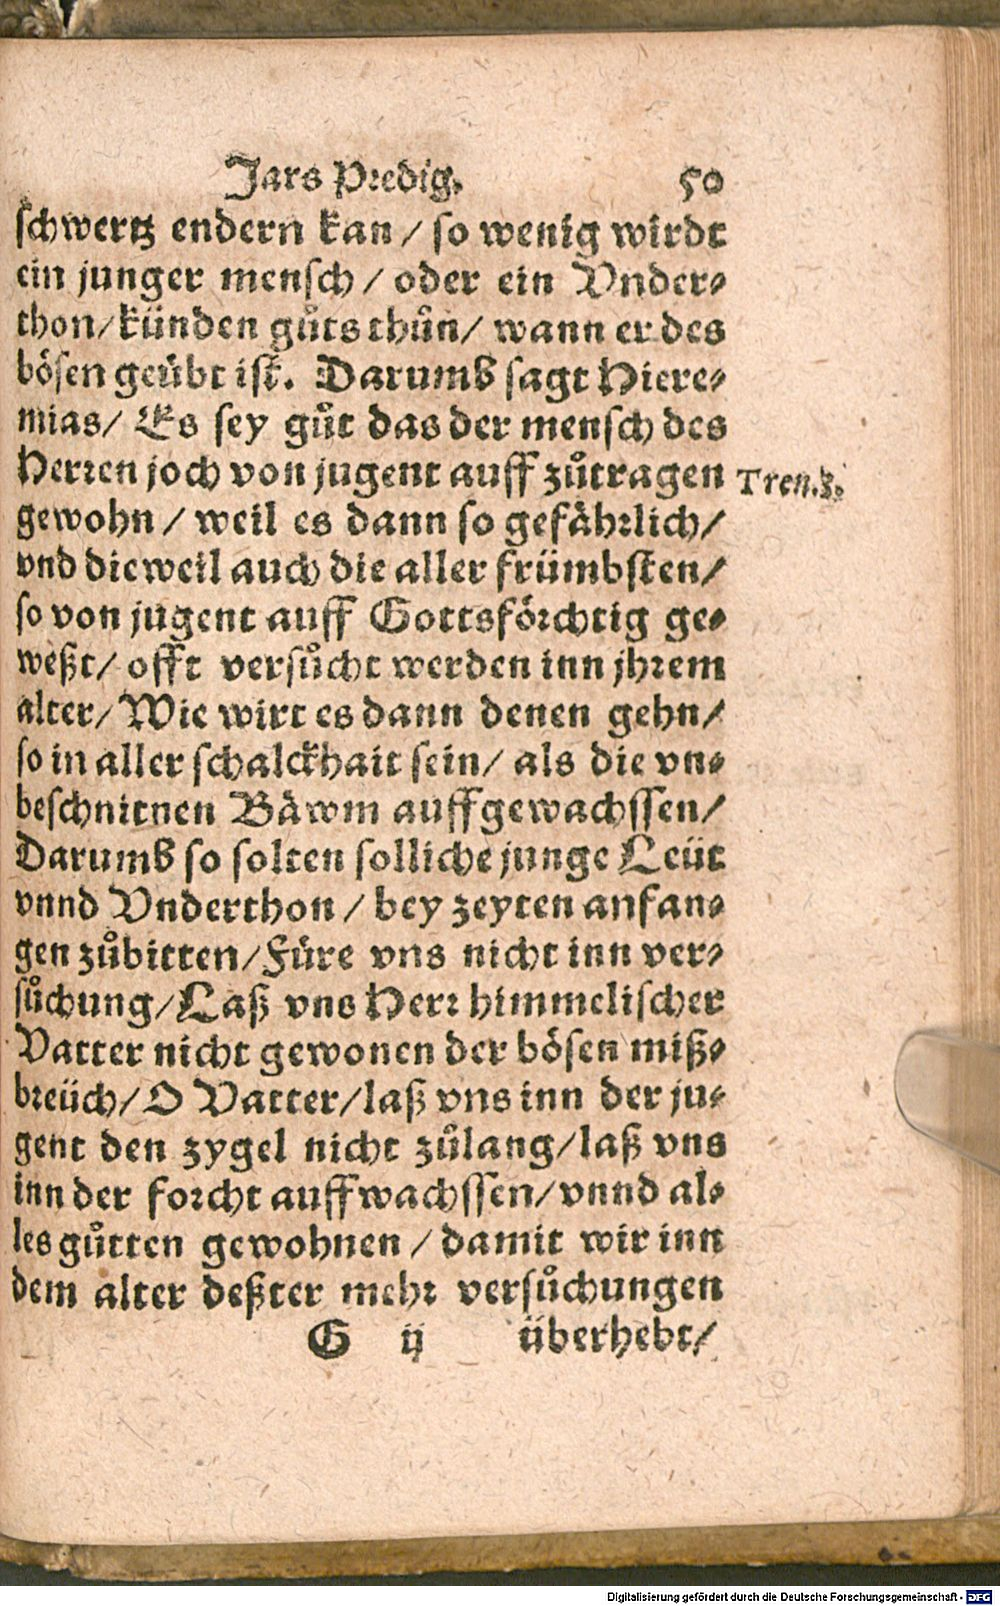 Jars Predig. 50
schwertz endern kan / so wenig wirdt
ein junger mensch / oder ein Vnder-
thon/ künden gůts thůn/ wann er des
bösen geübt ist. Darumb sagt Hiere-
mias/ Es sey gůt das der mensch des
Herren joch von jugent auff zůtragen Tren.3.
gewohn / weil es dann so gefährlich/
vnd dieweil auch die aller frümbsten/
so von jugent auff Gottsförchtig ge-
weßt/ offt versůcht werden inn jhrem
alter/ Wie wirt es dann denen gehn/
so in aller schalckhait sein/ als die vn-
beschnitnen Bäwm auffgewachssen/
Darumb so solten solliche junge Leüt
vnnd Vnderthon / bey zeyten anfan-
gen zůbitten/ Füre vns nicht inn ver-
sůchung/ Laß vns Herr himmelischer
Vatter nicht gewonen der bösen miß-
breüch/ O Vatter/ laß vns inn der ju-
gent den zygel nicht zůlang/ laß vns
inn der forcht auffwachssen/ vnnd al-
les gůtten gewohnen / damit wir inn
dem alter deßter mehr versůchungen
G ij überhebt/
Digitalisierung gefördert durch die Deutsche Forschungsgemeinschaft - DFG